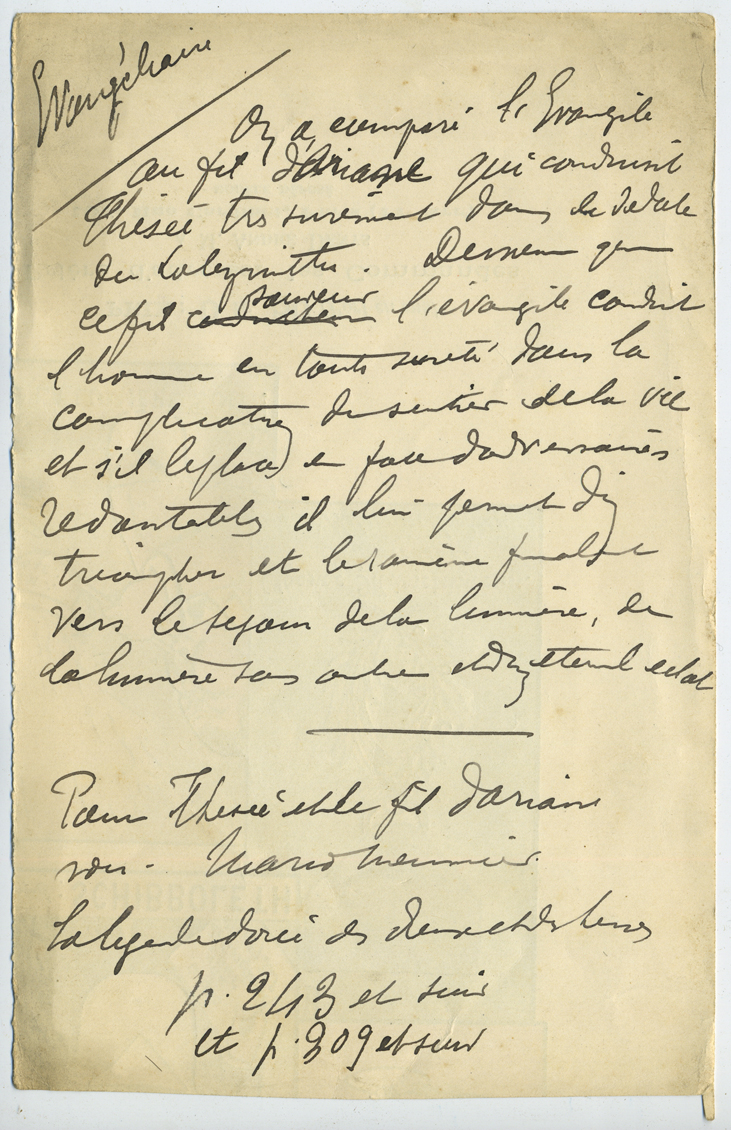 Evangéliaire
On a comparé l'Evangile
au fil d'Ariane qui conduisit
Thésée très surement dans le dédale
du Labyrinthe. De meme que
ce fil conducteur sauveur l'évangile conduit
l'homme en toute sureté dans la
complication du sentier de la vie
et s'il le place en face d'adversaires
redoutables il lui permet d'en
triompher et le ramène finalement
vers le sejour de la lumière, de
la lumière sans ombre et d'un eternel eclat
Pour Thesée et le fil d'Ariane
voir. Mario Meunier.
La legende dorée des dieux et des heros
p. 243 et suiv
et p. 309 et suiv